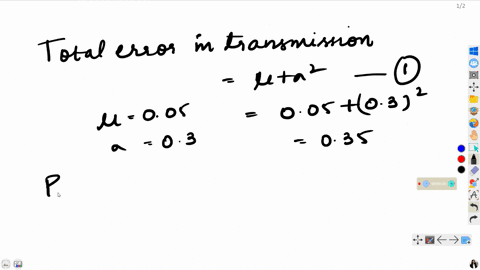 1/2
Total error in transmission
= μ+a² — ①
μ = 0.05 = 0.05+(0.3)²
a = 0.3 = 0.35
P